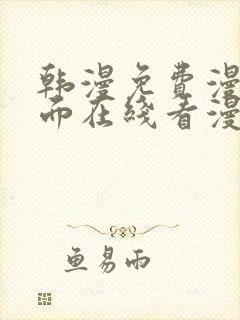 韩漫免费漫
而在线看漫
鱼易雨